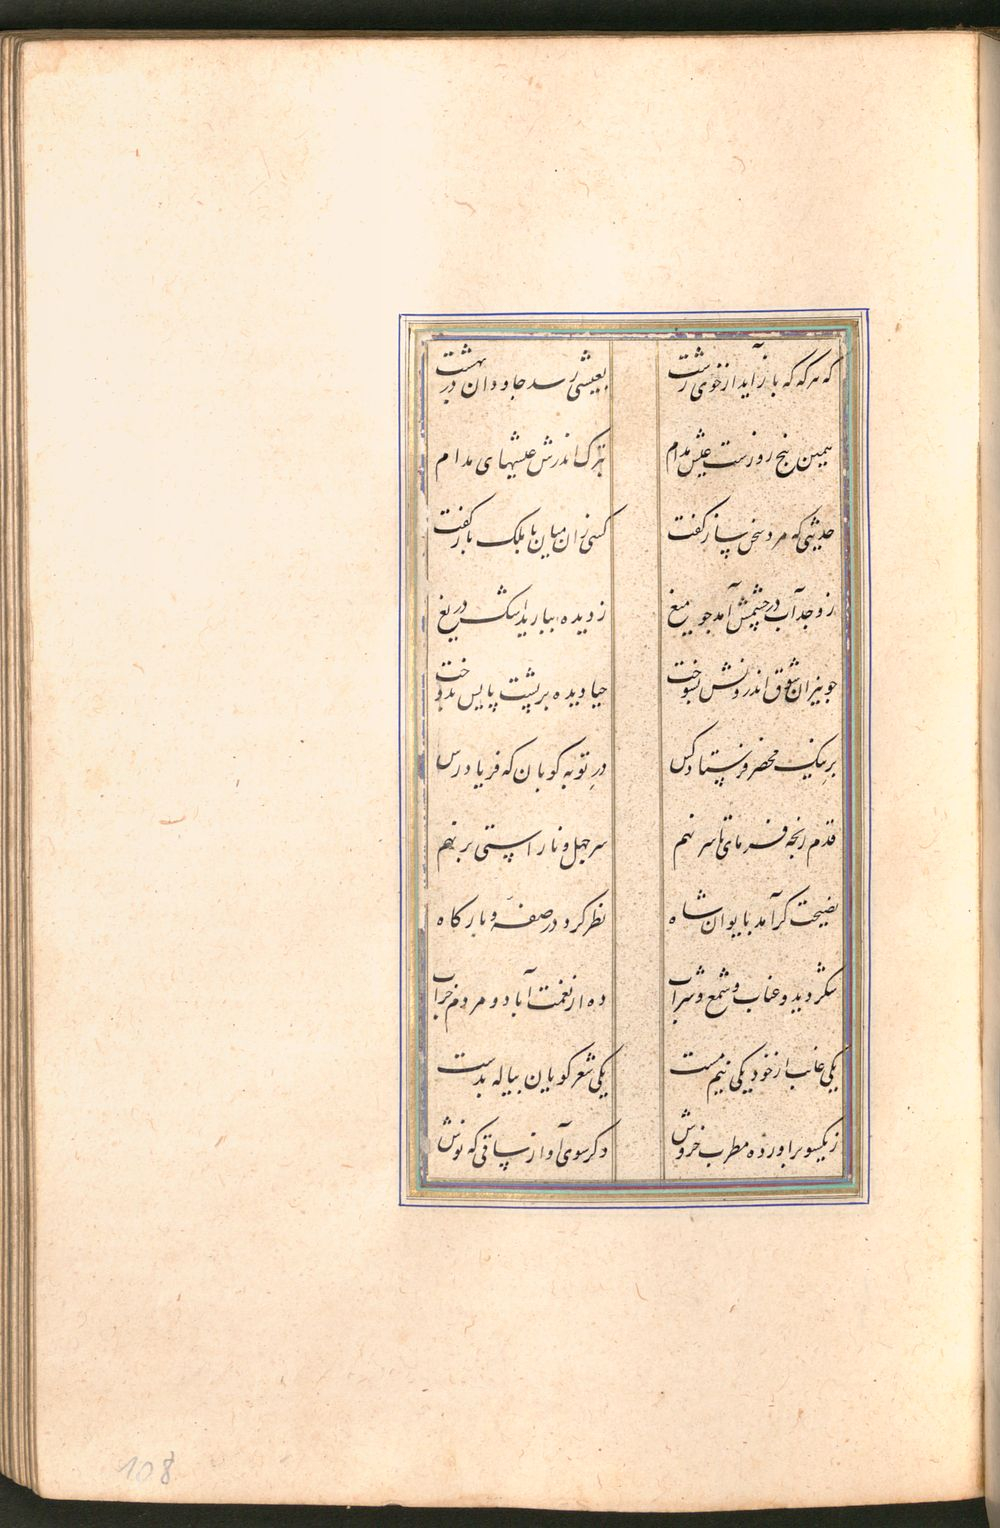 که هرکه که بازآید از خوی زشت
بعیشی رسد جاودان در بهشت
همین پنج روزست عیش مدام
بترک اندرش عیشهای مدام
حدیثی که مرد سخن ساز گفت
کسی زان میان با ملک بازگفت
ز وجد آب در چشمش آمد جو میغ
ز دیده ببارید اشک دریغ
جو نیران شوق اندرونش بسوخت
حیا دیده بر پشت پایش بدوخت
بر نیک محضر فرستاد کس
در توبه کوبان که فریاد رس
قدم رنجه فرمای تا سر نهم
سر جهل و ناراستی بر نهم
نصیحت کر آمد بایوان شاه
نظر کرد در صفه و بارکاه
شکر دید و عناب و شمع و شراب
ده از نعمت آباد و مردم خراب
یکی غایب از خود یکی نیم مست
یکی شعر کویان پیاله بدست
ز یکسو براورده مطرب خروش
دکر سوی آواز ساقی که نوش
108